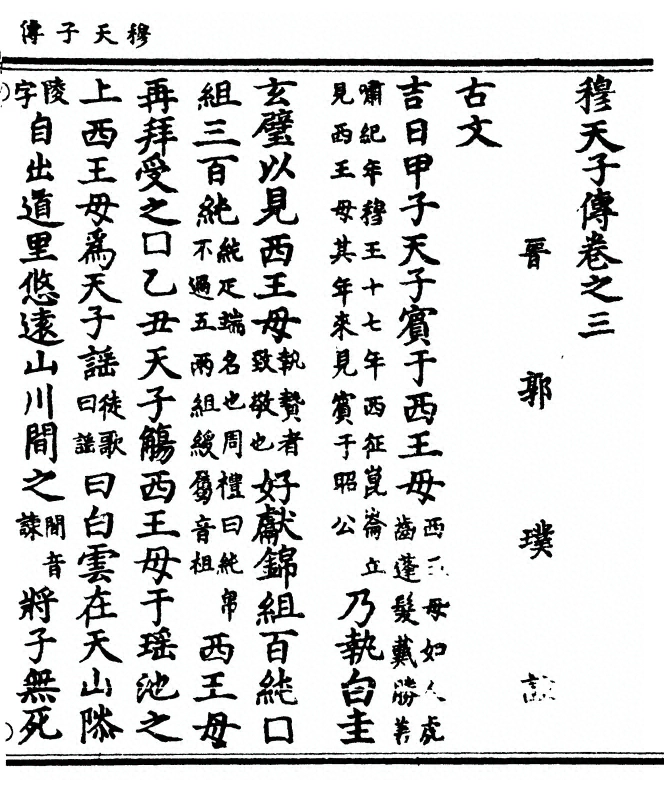 穆天子傳
穆天子傳卷之三
晉 郭 璞 註
古文
吉日甲子天子賓于西王母西王母如人虎齒蓬髮戴勝善
嘯紀年穆王十七年西征崑崙丘見西王母其年來見賓于昭公乃執白圭
玄璧以見西王母執贄者致敬也好獻錦組百純□
組三百純純疋端名也周禮曰純帛不過五兩組綬屬音祖西王母
再拜受之□乙丑天子觴西王母于瑶池之
上西王母爲天子謠徒歌曰謠曰白雲在天山䧙
陵字自出道里悠遠山川間之間音諫將子無死